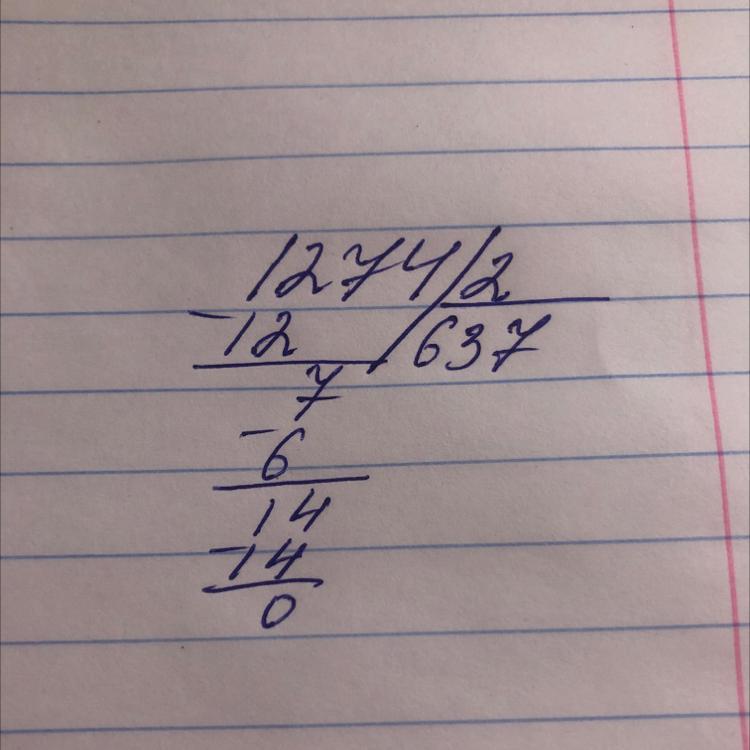 1274/2
-12 637
7
-6
14
-14
0